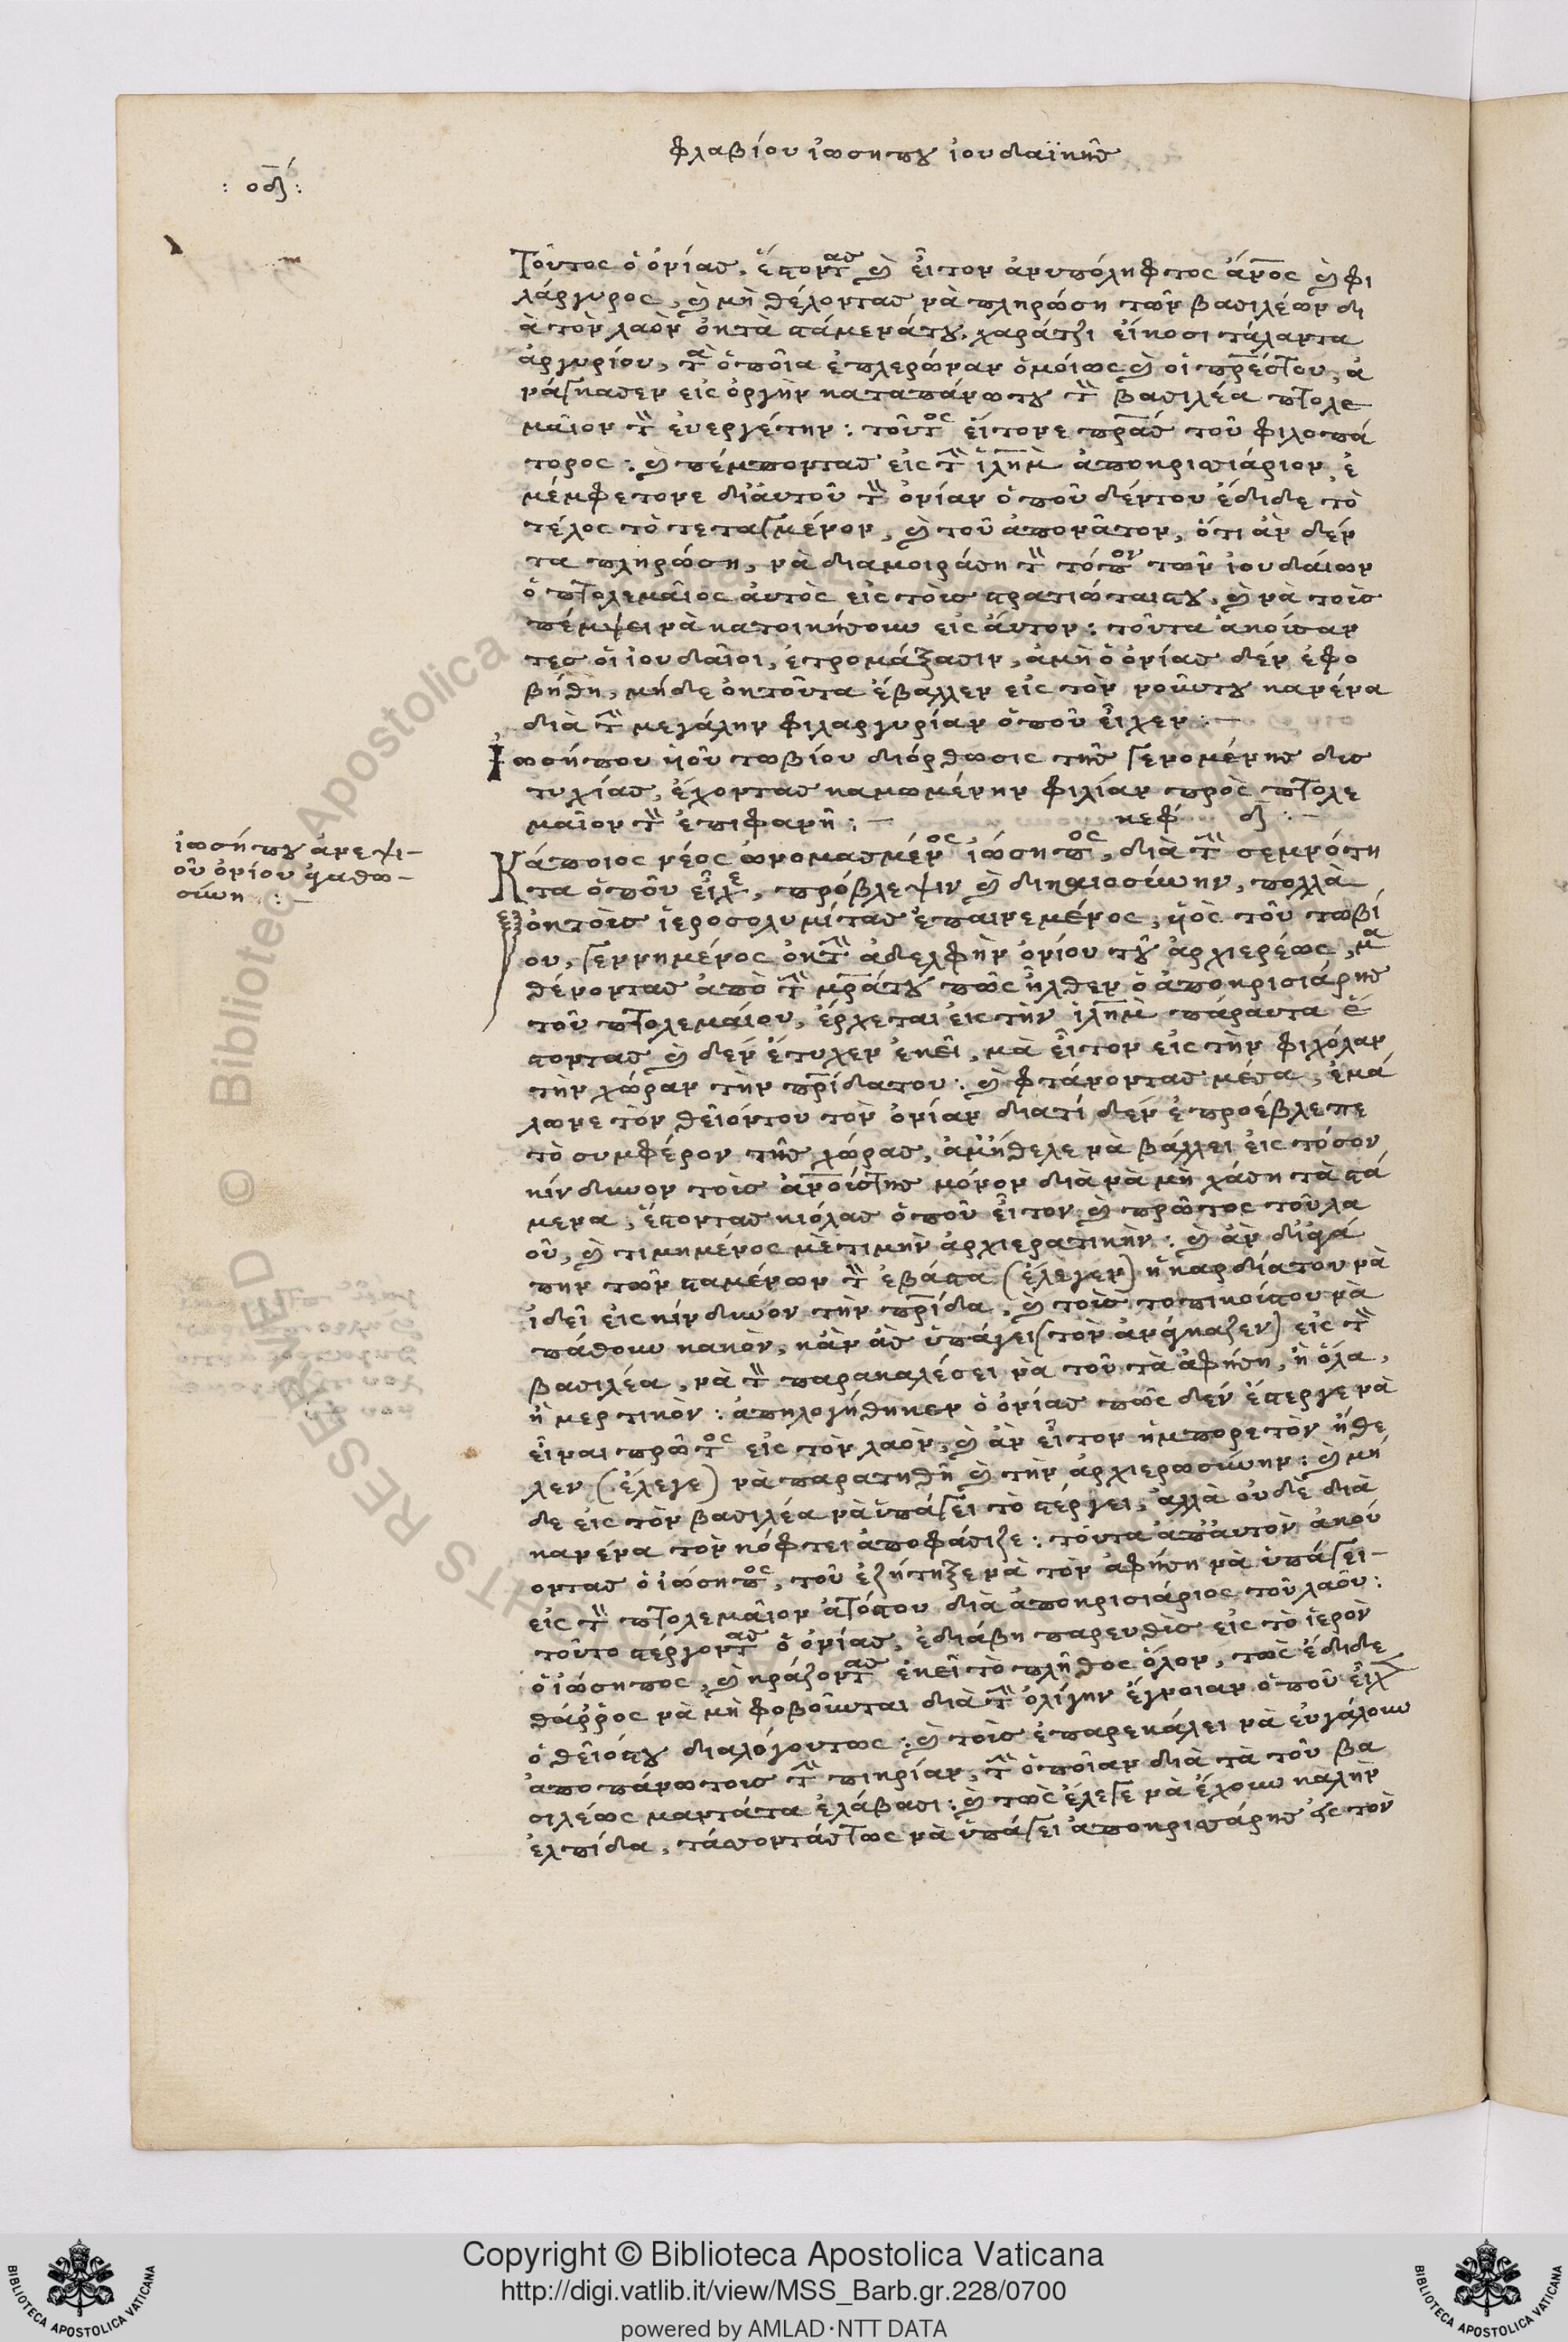 φλαβίου ἰωσηπου ἰουδαϊκῆς
Τοῦτος ὁ ὀνίας, ἔστοντας καὶ εἶτον ἀνυπόληφτος ἄνος καὶ φι
λάργυρος, καὶ μὴ θέλοντας νὰ πληρώση τῶν βασιλέων δι
ὰ τὸν λαὸν ὀκτὰ στάμενάτου, χαράτζι εἴκοσι τάλαντα
ἀργυρίου, τὰ ὁποῖα ἐπλερώναν ὁμοίως καὶ οἱ πρέστου, ἀ
νάγκασεν εἰς ὀργὴν καταπάνωτου τὸν βασιλέα πτολε
μαῖον τὸν ἐυεργέτην : τοῦτος εἴτονε πρας τοῦ φιλοπά
τορος : καὶ πέμποντας εἰς τὴν ἱλημ ἀποκρισιάριον, ἐ
μέμφετονε δι' αὐτοῦ τὸν ὀνίαν ὁποῦ δέντου ἔδιδε τὸ
τέλος τὸ τεταγμένον, καὶ τοῦ ἀπονᾶτον, ὅτι ἂν δέν
τα πληρώση, νὰ διαμοιράση τὸν τόπον τῶν ἰουδαίων
ὁ πτολεμαῖος ἀυτὸς εἰς τοὶς στρατιώταιςτου, καὶ νὰ τοὶς
πέμψει νὰ κατοικήσουν εἰς ἄυτον : τοῦτα ἀκούσαν
τες οἱ ἰουδαῖοι, ἐτρομάξασιν, ἀμὴ ὁ ὀνίας δέν ἐφο
βήθη, μήδε ὀκτοῦτα ἔβαλλεν εἰς τὸν νοῦντου κανένα
διὰ τὴν μεγάλην φιλαργυρίαν ὁποῦ εἶχεν :
Ἰωσήπου ὑιοῦ τωβίου διόρθωσις τῆς γενομένης δυσ
τυχίας, ἔχοντας καμωμένην φιλίαν πρὸς πτολε
μαῖον τὸν ἐπιφανῆ : κεφ δ :
ἰωσήπου ἀνεψι
οῦ ὀνίου ἀγαθω
σύνη :
Κάποιος νέος ὠνομασμένος ἰώσηπος, διὰ τὴν σεμνότη
τα ὁποῦ εἶχε, πρόβλεψιν καὶ δικαιοσύνην, πολλὰ
ὀκτοὶς ἱεροσολυμίτας ἐπαινεμένος, ὑιὸς τοῦ τωβί
ου, γεννημένος ὀκτὴν ἀδελφὴν ὀνίου τοῦ ἀρχιερέως, μα
θένοντας ἀπὸ τὴν μράτου πῶς ἦλθεν ὁ ἀποκρισιάρης
τοῦ πτολεμαίου, ἔρχεται εἰς τὴν ἱλημ πάραυτα ἔ
στοντας καὶ δεν ἔτυχεν ἐκεῖ, μὰ εἶτον εἰς τὴν φιχόλαν
τὴν χώραν τὴν πρίδατου : καὶ φτάνοντας μέσα, ἐμά
λωνε τὸν θεῖόντου τὸν ὀνίαν διατί δεν ἐπροέβλεπε
τὸ συμφέρον τῆς χώρας, ἀμἤθελε νὰ βάλλει εἰς τόσον
κίνδυνον τοὶς ἀνούστης μόνον διὰ νὰ μὴ χάση τὰ στά
μενα, ἔστοντας κιόλας ὁποῦ εἶτον καὶ πρῶτος τοῦ λα
οῦ, καὶ τιμημένος μὲ τιμὴν ἀρχιερατικὴν : καὶ ἂν δι' ἀγά
πην τῶν σταμένων τὸν ἐβάστα (ἔλεγεν) ἡ καρδίατου νὰ
ἰδεῖ εἰς κίνδυνον τὴν πρίδα, καὶ τοὶς τοπικούςτου νὰ
πάθουν κακὸν, κἂν ἂς ὑπάγει (τὸν ἀνάγκαζεν) εἰς τὸν
βασιλέα, νὰ τὸν παρακαλέσει νὰ τοῦ τὰ ἀφήση, ἢ ὅλα,
ἢ μερτικὸν : ἀπηλογήθηκεν ὁ ὀνίας πῶς δεν ἔστεργε νὰ
εἶναι πρῶτος εἰς τὸν λαὸν, καὶ ἂν εἶτον ἡμπορετὸν ἤθε
λεν (ἔλεγε) νὰ παρατηθῆ καὶ τὴν ἀρχιερωσύνην : καὶ μή
δε εἰς τὸν βασιλέα νὰ ὑπάγει τὸ στέργει, ἀλλὰ οὐδὲ διὰ
κανένα τὸν κόφτει ἀποφάσιζε : τοῦτα ἀπ' ἀυτὸν ἀκού
οντας ὁ ἰώσηπος, τοῦ ἐζήτηξε νὰ τὸν ἀφήση νὰ ὑπάγει
εἰς τὸν πτολεμαῖον ἀτόςτου διὰ ἀποκρισιάριος τοῦ λαοῦ :
τοῦτο στέργοντας ὁ ὀνίας, ἐδιάβη παρευθὺς εἰς τὸ ἱερὸν
ὁ ἰώσηπος, καὶ κράζοντας ἐκεῖ τὸ πλῆθος ὅλον, τως ἔδιδε
θάῤῥος νὰ μὴ φοβοῦνται διὰ τὴν ὀλίγην ἔγνοιαν ὁποῦ εἶχ
ὁ θεῖόςτου διαλόγουντως : καὶ τοὶς ἐπαρεκάλει νὰ εὐγάλουν
ἀπο πάνωτους τὴν πικρίαν, τὴν ὁποῖαν διὰ τὰ τοῦ βα
σιλέως μαντάτα ἐλάβασι : καὶ τως ἔλεγε νὰ ἔχουν καλὴν
ἐλπίδα, τάσσοντάςτως νὰ ὑπάγει ἀποκρισάρης εἰς τὸν